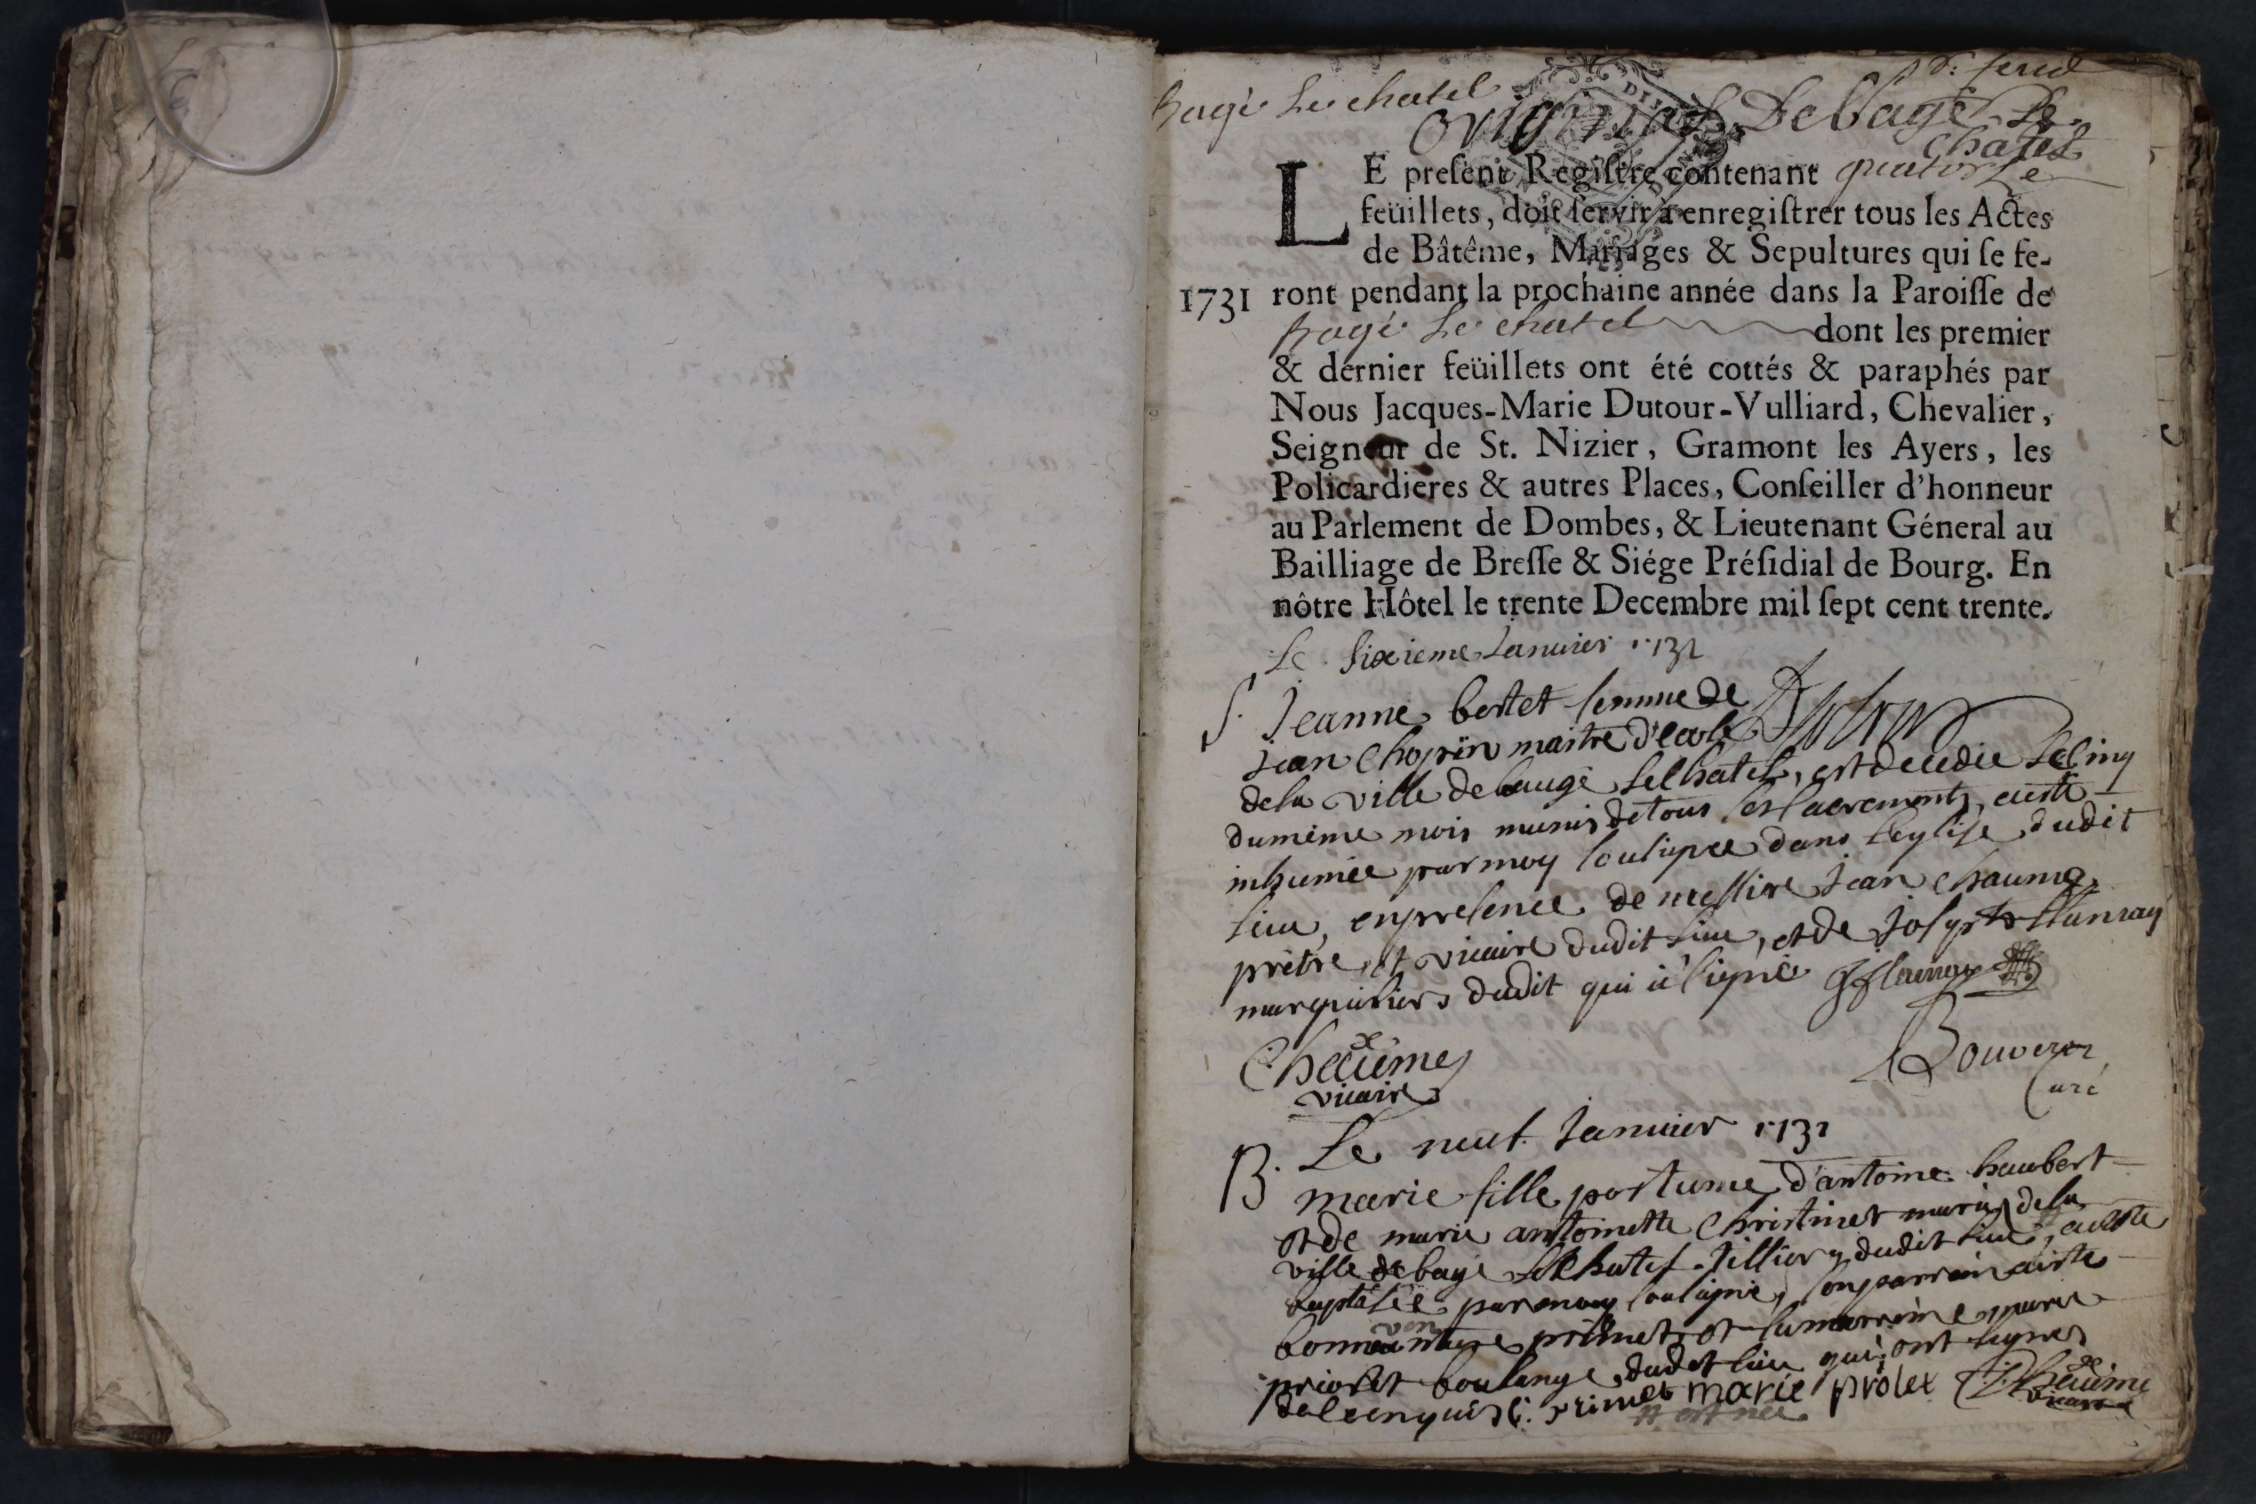 Bagé Le chatel
original De bagé Le
chatel
LE preſent Regiſtre contenant quatorze
feüillets, doit ſervir à enregiſtrer tous les Actes
de Bâtême, Mariages & Sepultures qui ſe fe-
1731 ront pendant la prochaine année dans la Paroiſſe de
Bagé Le chatel dont les premier
& dernier feüillets ont été cottés & paraphés par
Nous Jacques-Marie Dutour-Vulliard, Chevalier,
Seigneur de St. Nizier, Gramont les Ayers, les
Policardieres & autres Places, Conſeiller d'honneur
au Parlement de Dombes, & Lieutenant Géneral au
Bailliage de Breſſe & Siége Préſidial de Bourg. En
nôtre Hôtel le trente Decembre mil ſept cent trente.
Le sixieme Januier 1731
S. Jeanne bertet femme de
jean Chopin maitre d'ecole
dela ville de baugé Le Chatel, est decedée Le cinq
du méme mois munis de tous les sacrements, eteste
inhumée par moy soussignée dans L'eglise dudit
lieu, en presence de messire jean chaume
prétre et vicaire dudit lieu, et de
marguilliers dudit qui a signé
Cheaume
vicaire
Bouverot
Curé
B. Le neuf Januier 1731
marie fille postume d'antoine haubert
et de marie antoinette Christinet mariés dela
ville de bagé Le Chatel dudit lieu, aesté
baptisée par moy sousigné, son parrain aesté
bonnaventure primet et sa marraine marie
prolet boulange dudit lieu qui ont signés
de ce enquis. primet marie prolet Cheaume
vicaire
# est née